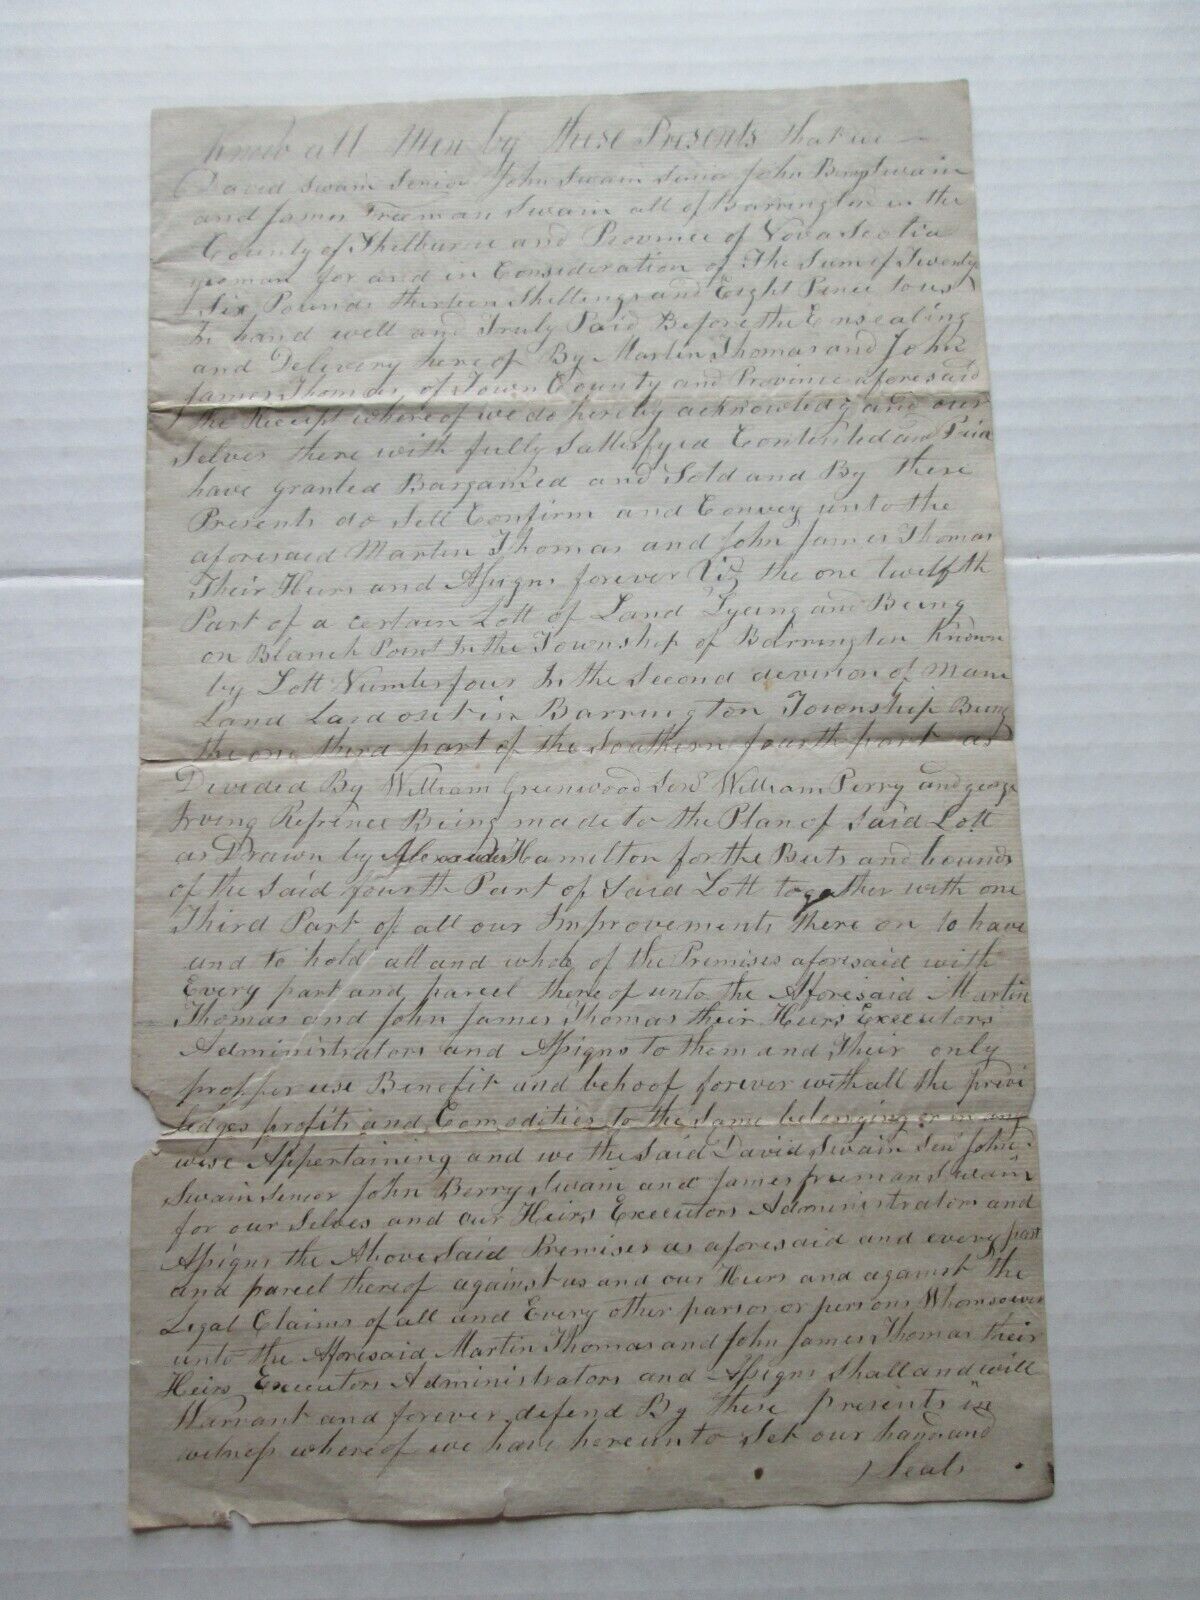 Know all Men by these Presents that we
David Swain Senior John Swain Senior John Berry Swain
and James Freeman Swain all of Barrington in the
County of Shelburne and Province of Nova Scotia
yeoman for and in Consideration of The Sum of Twenty
Six Pounds thirteen Shillings and Eight Pence to us
In hand well and Truly Paid Before the Ensealing
and Delivery here of By Martin Thomas and John
James Thomas of Town County and Province aforesaid
the Receipt where of we do hereby acknowledg and our
Selves there with fully Sattisfyed Contented and Paid
have granted Bargained and Sold and By these
Presents do Sell Confirm and Convey unto the
aforesaid Martin Thomas and John James Thomas
Their Heirs and Assigns forever Viz the one twelfth
Part of a certain Lott of Land Lyeing and Being
on Blanch Point In the Township of Barrington Known
by Lott Number four In the Second devision of Main
Land Laid out in Barrington Township Being
the one third part of the Southern fourth part as
Devided By William Greenwood Senr William Perry and george
Irving Refrence Being made to the Plan of Said Lott
as Drawn by Alexander Hamilton for the Buts and bounds
of the Said fourth Part of Said Lott together with one
Third Part of all our Improvements there on to have
and to hold all and whole of the Premises aforesaid with
Every part and parcel there of unto the Aforesaid Martin
Thomas and John James Thomas their Heirs Executors
Administrators and Assigns to them and their only
propper use Benefit and behoof forever with all the privi
ledges profits and Comodities to the Same belonging or in any
wise Appertaining and we the Said David Swain Senr John
Swain Senior John Berry Swain and James freeman Swain
for our Selves and our Heirs Executors Administrators and
Assigns the Above Said Premises as aforesaid and every part
and parcel thereof against us and our Heirs and against the
Legal Claims of all and Every other parson or persons Whomsoever
unto the Aforesaid Martin Thomas and John James Thomas their
Heirs Executors Administrators and Assigns Shall and will
Warrant and forever defend By these presents in
witness where of we have here unto Set our hands and
Seals